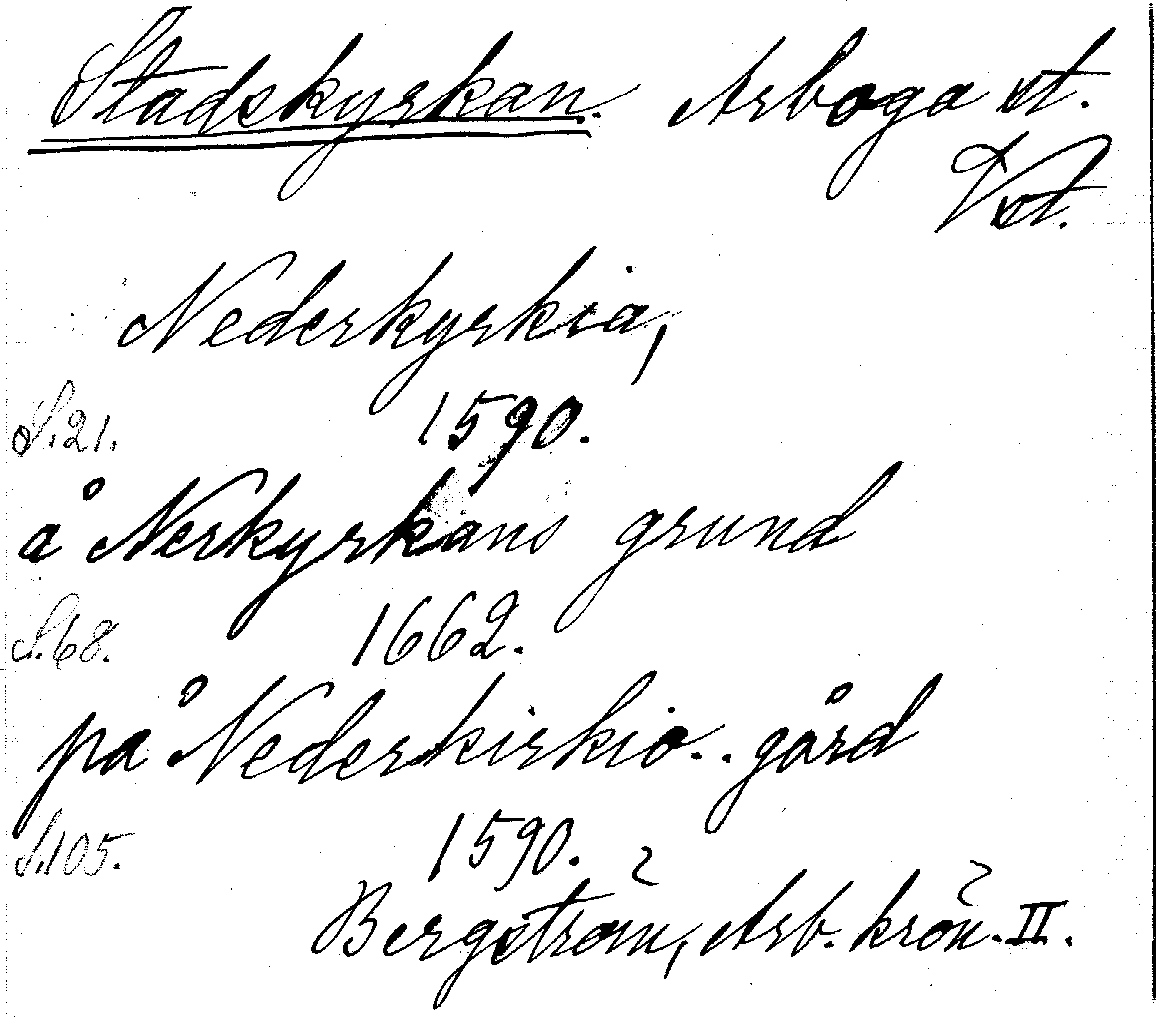 Stadskyrkan. Arboga st.
Vst.
Nederkyrkia,
S.21. 1590.
å Nerkyrkans grund
S.68. 1662.
på Nederkirkio.. gård
S.105. 1590.
Bergström, Arb. krön. II.